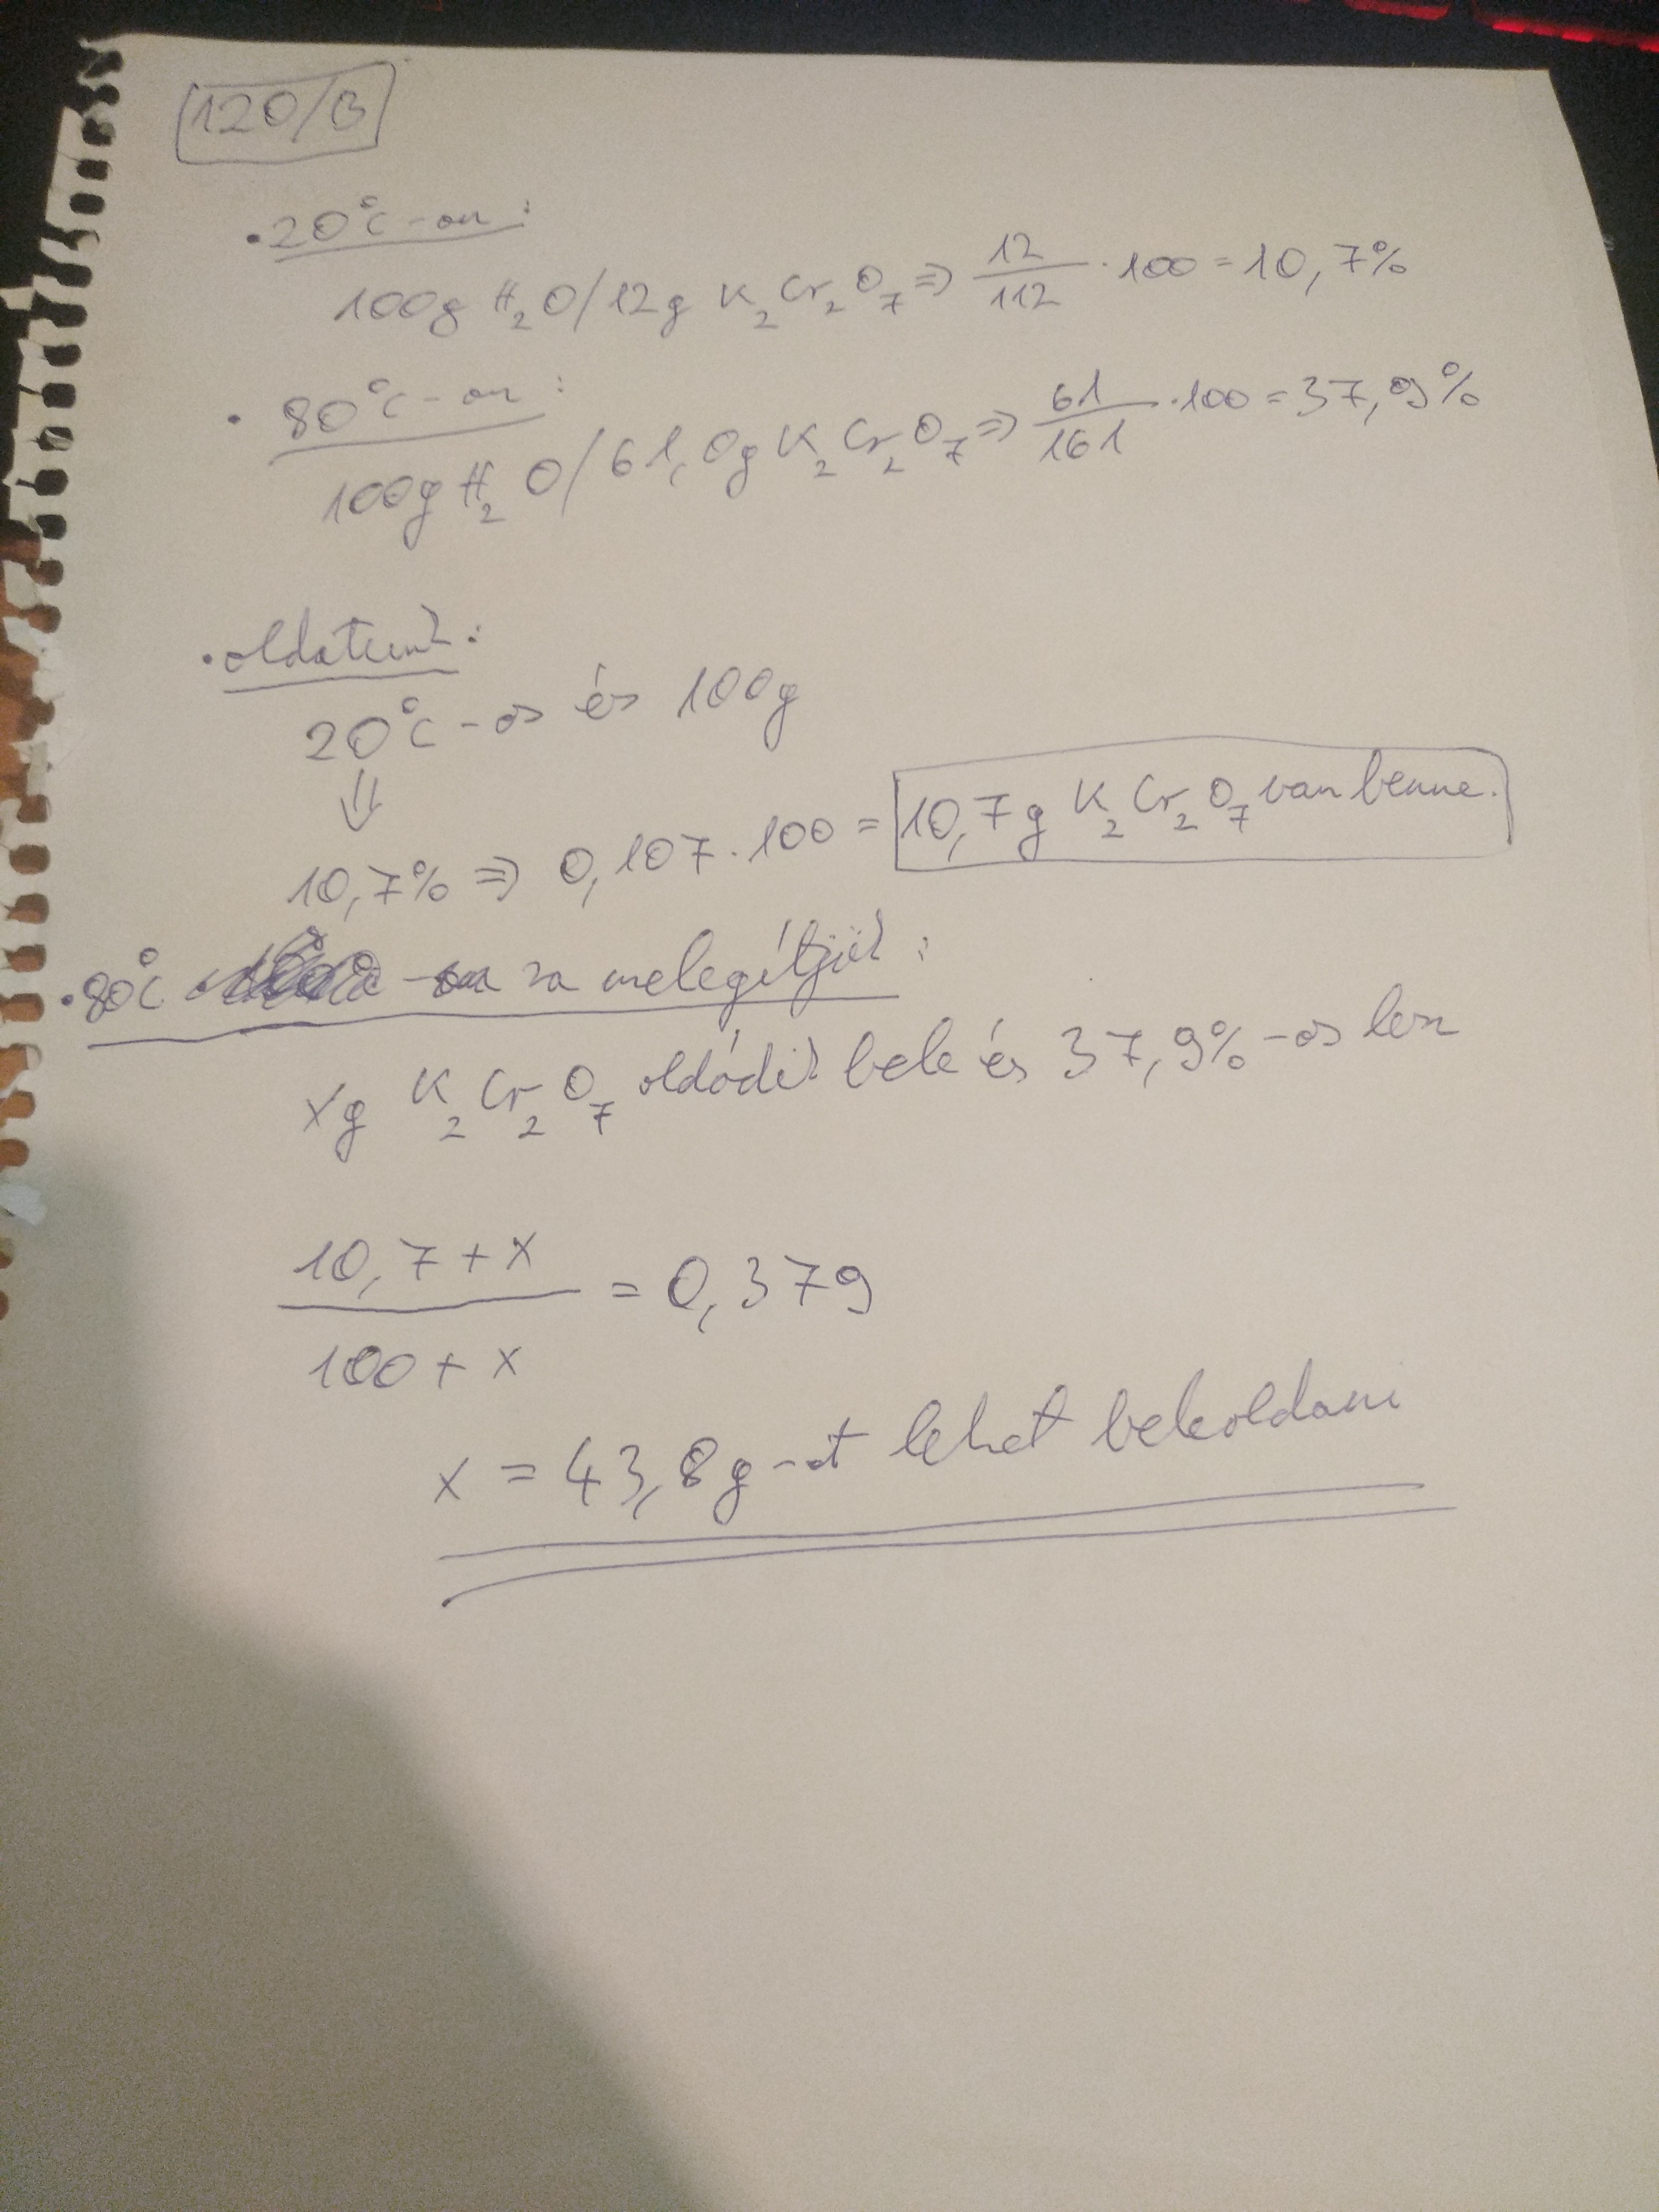 120/B
• 20°C-on:
100g H₂O/12g K₂Cr₂O₇ ⇒ 12/112 · 100 = 10,7%
• 80°C-on:
100g H₂O/61,0g K₂Cr₂O₇ ⇒ 61/161 · 100 = 37,9%
• oldatunk:
20°C-os és 100g
⇓
10,7% ⇒ 0,107 · 100 = 10,7g K₂Cr₂O₇ van benne.
• 80°C -ra melegítjük:
xg K₂Cr₂O₇ oldódik bele és 37,9%-os lesz
10,7 + x
/ 100 + x = 0,379
x = 43,8g-ot lehet beleoldani